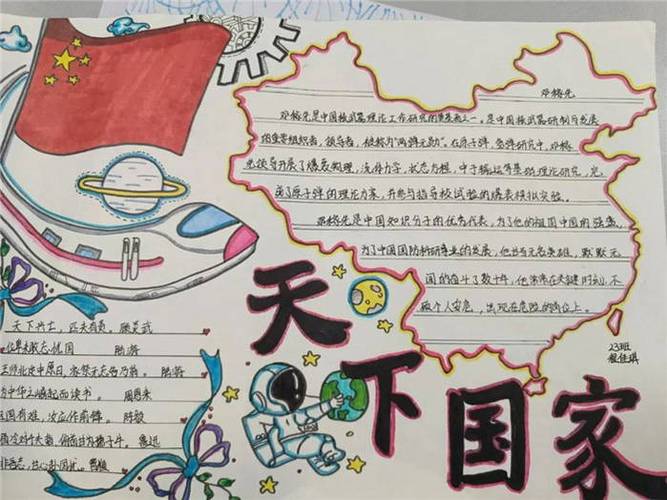 邓稼先
邓稼先是中国核武器理论工作研究的奠基者之一。是中国核武器研制与发展
的重要组织者,领导者,被称为“两弹元勋”。在原子弹、氢弹研究中,邓稼
先领导开展了爆轰物理,流体力学,状态方程,中子输运等基础理论研究,完
成了原子弹的理论方案,并参与指导核试验的爆轰模拟实验。
邓稼先是中国知识分子的优秀代表,为了他的祖国中国的强盛,
为了中国国防科研事业的发展,他甘当无名英雄,默默无
闻的奋斗了数十年,他常常在关键时刻,不
顾个人安危,出现在危险的岗位上。
23班
天下国家
天下兴亡,匹夫有责 顾炎武
位卑未敢忘忧国 陆游
王师北定中原日,家祭无忘告乃翁。陆游
为中华之崛起而读书。 周恩来
祖国有难,汝应作前锋。陈毅
俯首甘为孺子牛。鲁迅